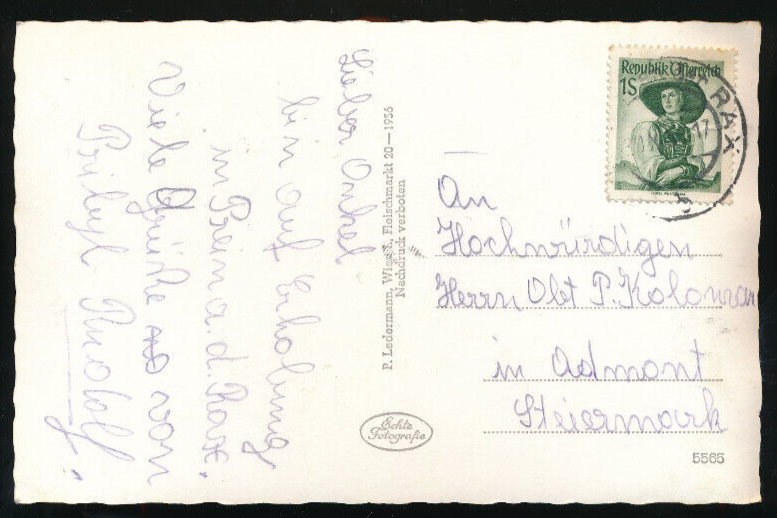 Lieber Onkel
bin auf Erholung
in Prein a. d. Raxe.
Viele Grüße von
Pribyl Rudolf.
P. Ledermann, Wien I., Fleischmarkt 20—1956
Nachdruck verboten
Echte
Fotografie
Republik Österreich
1S
RAX
17
An
Hochwürdigen
Herrn Abt P. Koloman
in Admont
Steiermark
5565